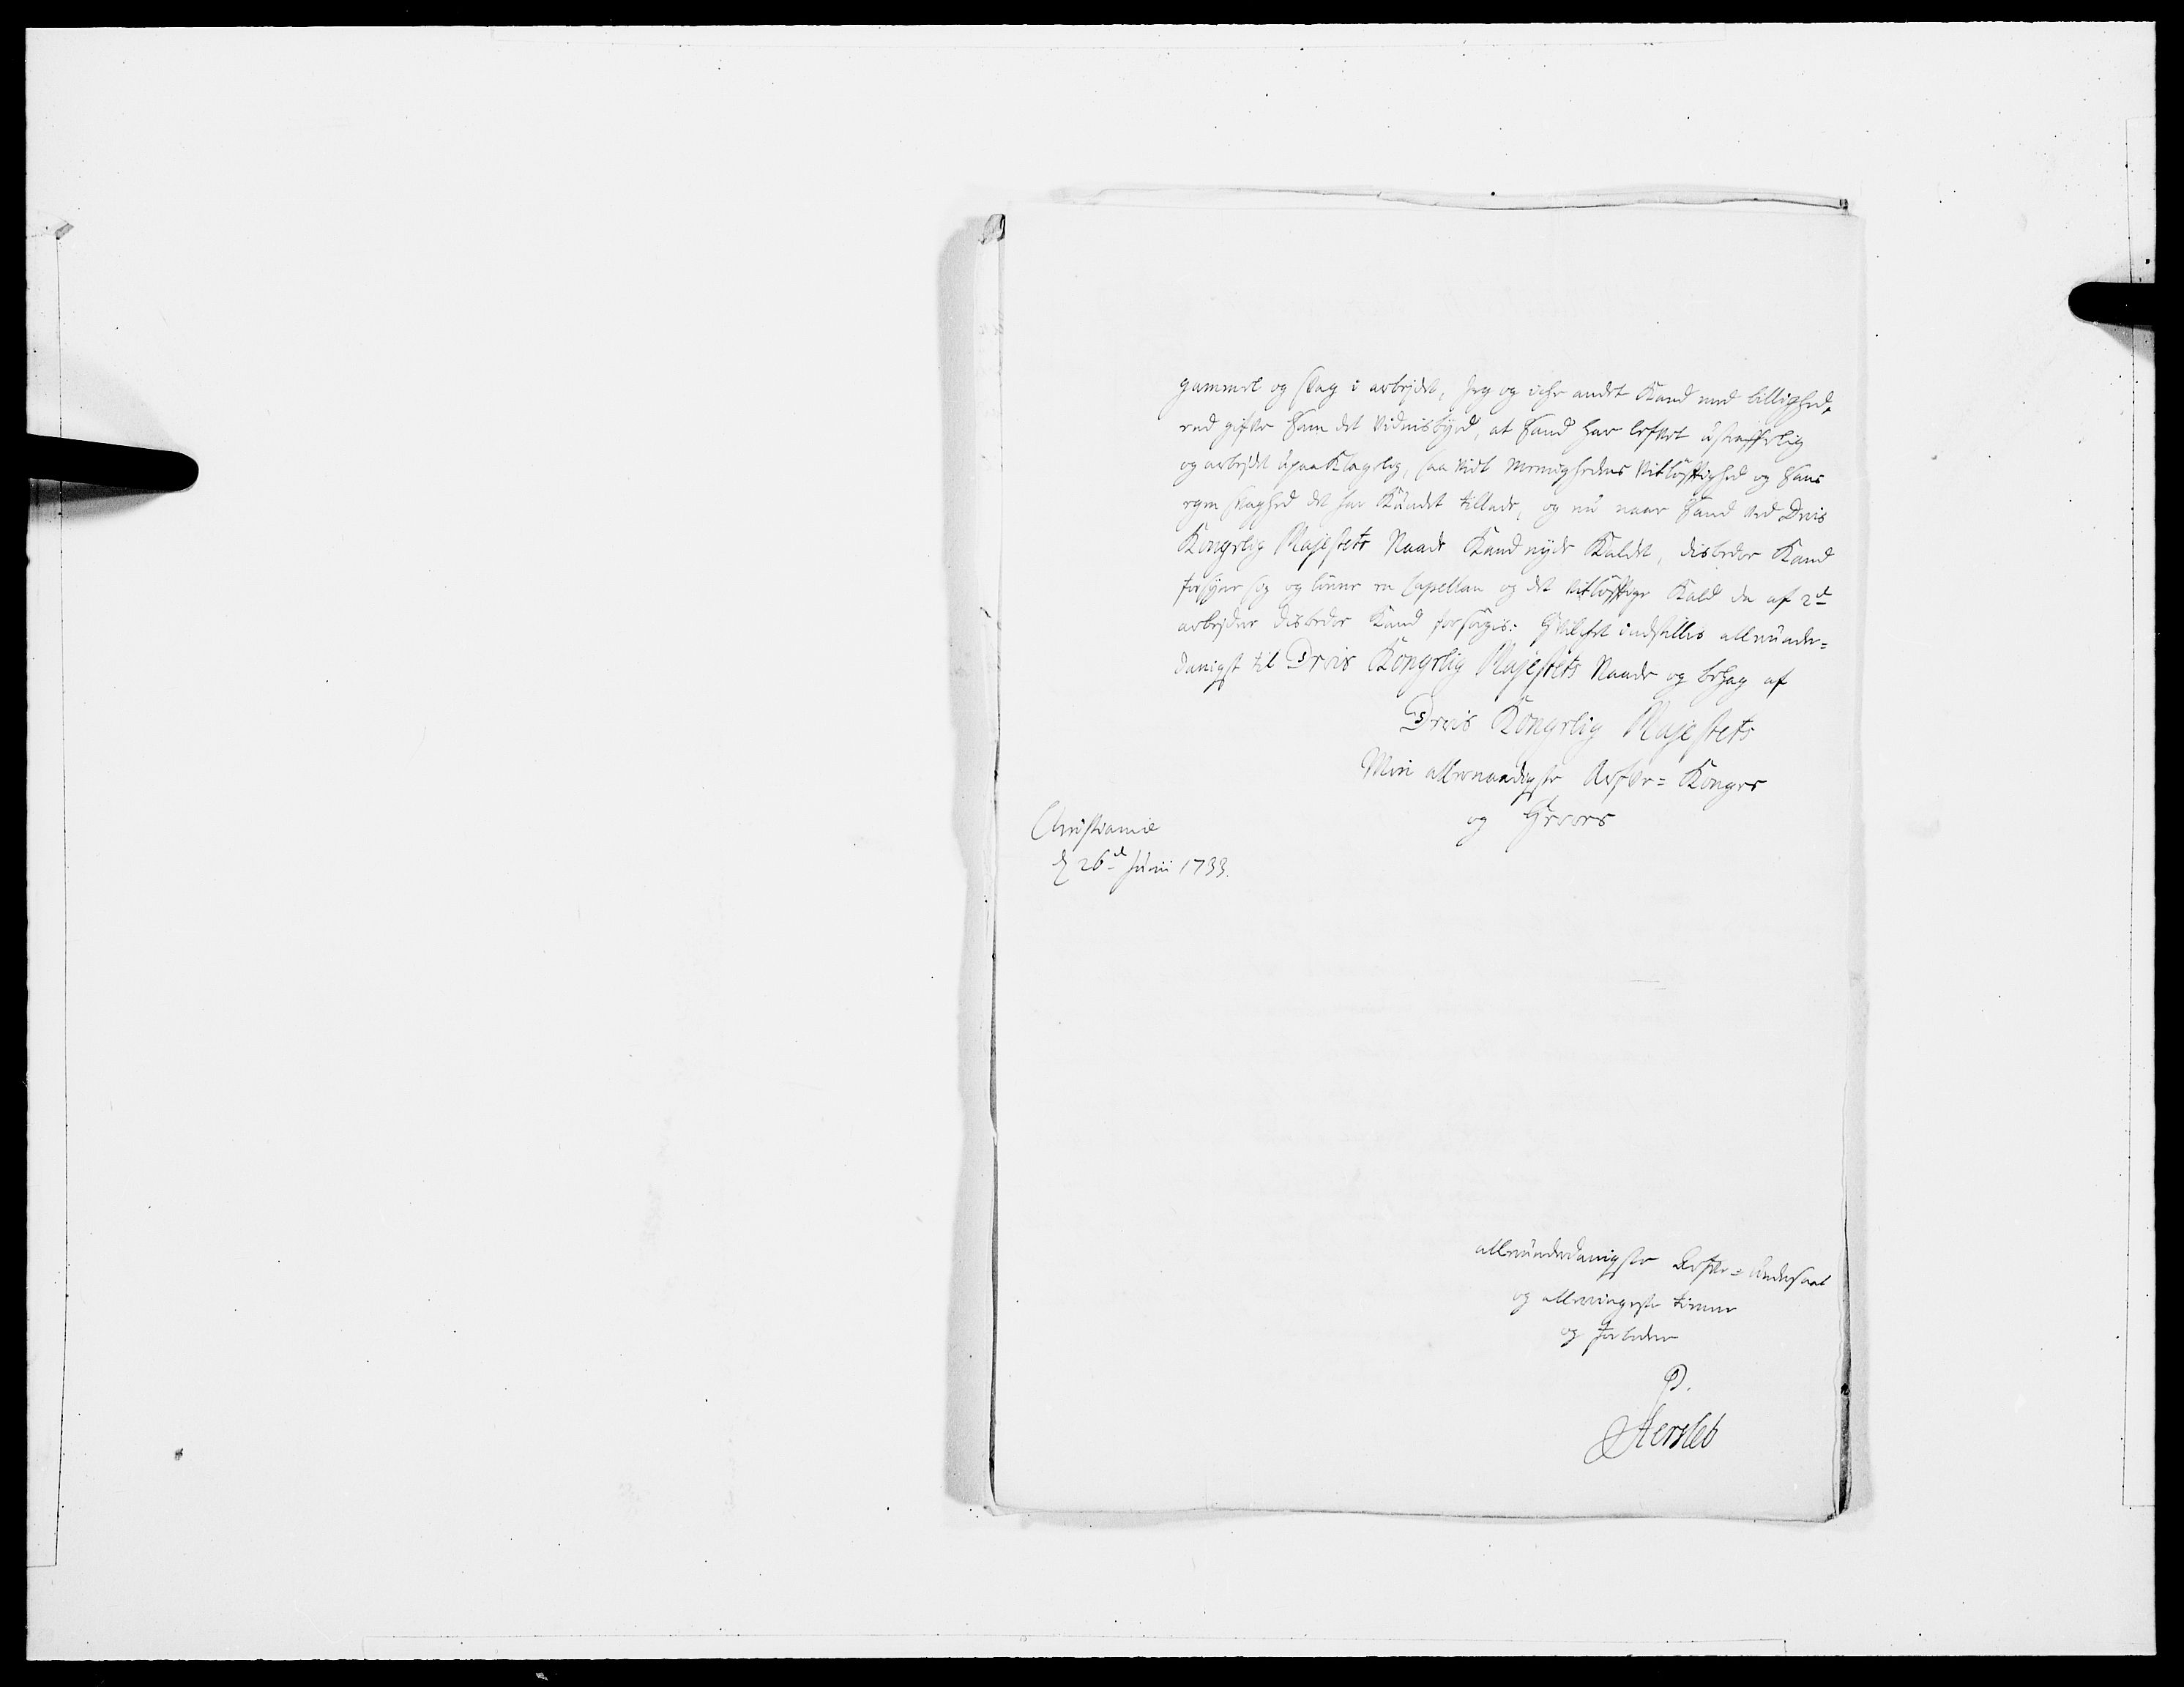 gammel og svag i arbejdet, jeg og icke andet Kand med billighed,
end gifve ham det Vidnisbyrd, at hand har lefvet ustraffelig
og arbejdet upaaKlagelig, saa vidt Menighedens Vitløftighed og hans
egen svaghed det har Kundet tillade, og nu naar hand ved Deris
Kongelig Majestets Naade Kand nyde Kaldet, disbedre Kand
forsyne sig og lønne en Capellan og det vitløftige Kald da af 2de
arbejdere disbedre Kand forsøgis: Hvilchet indstillis allerunder=
danigst til Deris Kongelig Majestets Naade og behag af
Deris Kongelig Majestets
Min allernaadigste Arfve= Konges
og Herres
Christiania
d 26de Junii 1733.
allerunderdanigste Arfve=undersaat
og allerringeste tiener
og forbeder
P.
Hersleb